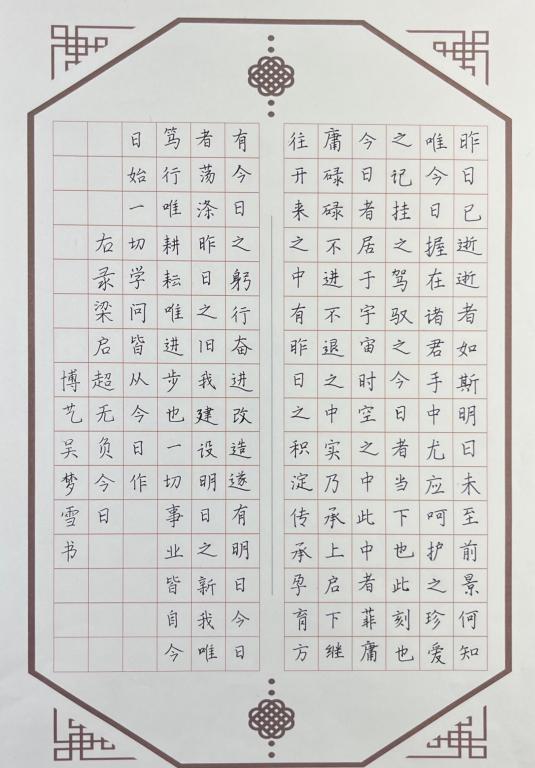 昨日已逝逝者如斯明日未至前景何知
唯今日握在诸君手中尤应呵护之珍爱
之记挂之驾驭之今日者当下也此刻也
今日者居于宇宙时空之中此中者菲庸
庸碌碌不进不退之中实乃承上启下继
往开来之中有昨日之积淀传承孕育方
有今日之躬行奋进改造遂有明日今日
者荡涤昨日之旧我建设明日之新我唯
笃行唯耕耘唯进步也一切事业皆自今
日始一切学问皆从今日作
右录梁启超无负今日
博艺吴梦雪书